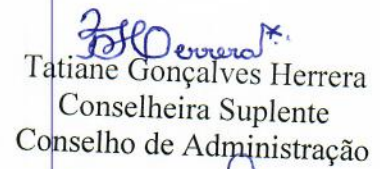 Tatiane Gonçalves Herrera
Conselheira Suplente
Conselho de Administração